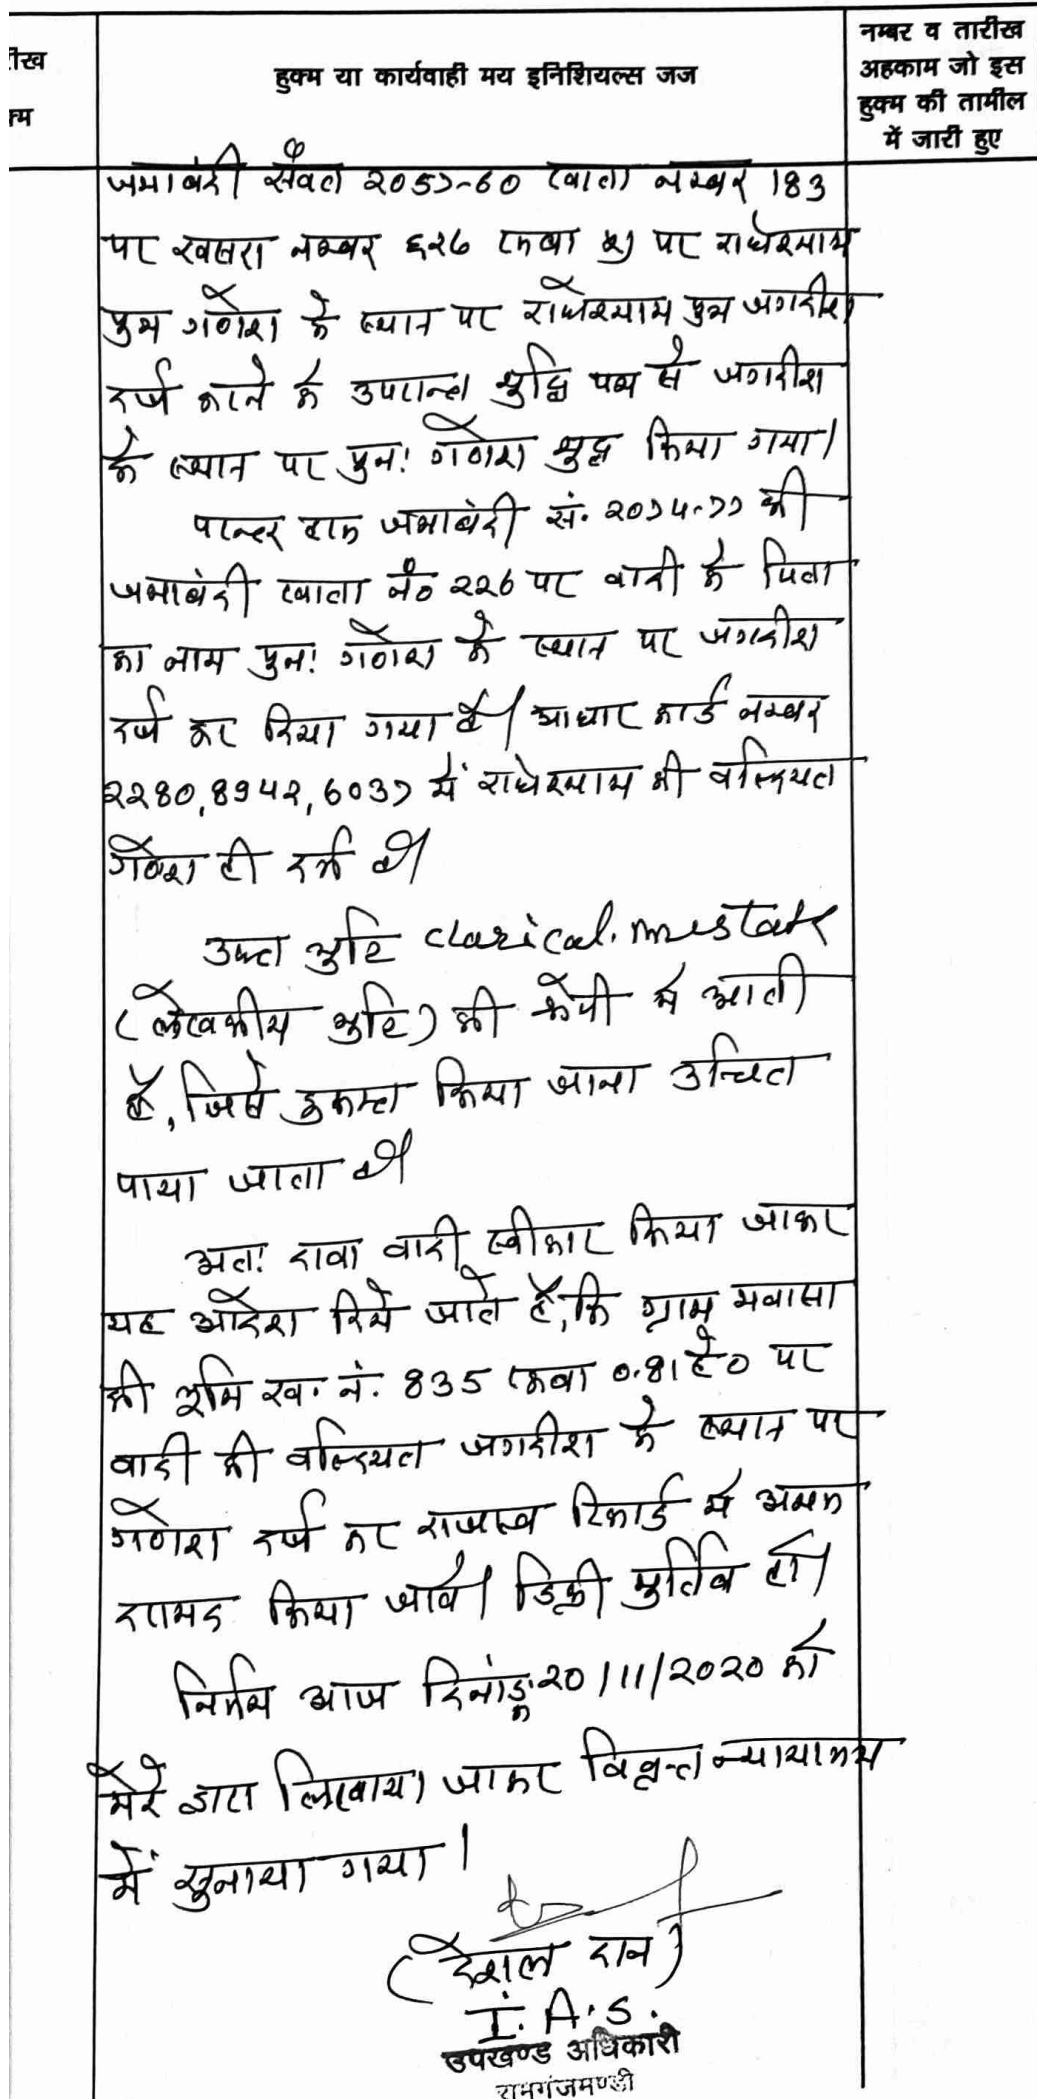 रीख
क्म
हुक्म या कार्यवाही मय इनिशियल्स जज
नम्बर व तारीख
अहकाम जो इस
हुक्म की तामील
में जारी हुए
जमाबंदी संवत 2057-60 खाता नम्बर 183
पर खसरा नम्बर 626 रकबा पर राधेश्याम
पुत्र गणेश के स्थान पर राधेश्याम पुत्र जगदीश
दर्ज करने के उपरान्त शुद्धि पत्र से जगदीश
के स्थान पर पुन: गणेश शुद्ध किया गया।
परन्तु हाल जमाबंदी सं. 2074-77 की
जमाबंदी खाता नं० 226 पर वादी के पिता
का नाम पुन: गणेश के स्थान पर जगदीश
दर्ज कर दिया गया है। आधार कार्ड नम्बर
2280,8942,6037 में राधेश्याम की वल्दियत
गणेश ही दर्ज है।
उक्त त्रुटि clarical. mestak
(लेखकीय त्रुटि) की श्रेणी में आती
है, जिसे दुरूस्त किया जाना उचित
पाया जाता है।
अत: दावा वादी स्वीकार किया जाकर
यह आदेश दिये जाते है, कि ग्राम मवासा
की भूमि ख. नं. 835 रकबा 0.81 है० पर
वादी की वल्दियत जगदीश के स्थान पर
गणेश दर्ज कर राजस्व रिकार्ड में अमल
दरामद किया जावे। डिक्री मुर्तिब हो।
निर्णय आज दिनांक 20/11/2020 को
मेरे द्वारा लिखवाया जाकर विवृत न्यायालय
में सुनाया गया।
(देशल दान)
I.A.S.
उपखण्ड अधिकारी
रामगंजमण्डी